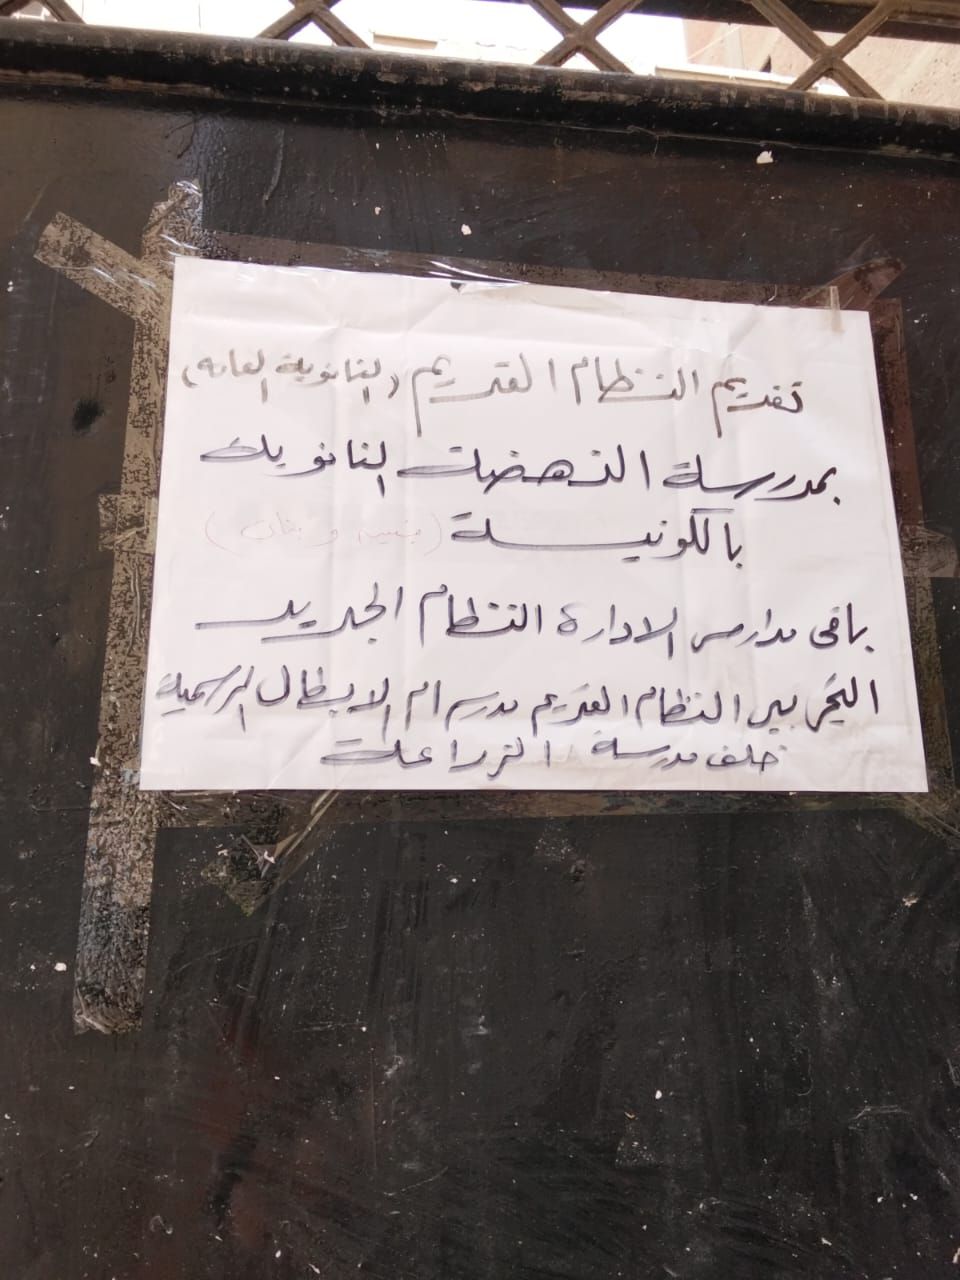 تقديم النظام القديم (الثانوية العامه)
بمدرسة النهضة الثانوية
بالكونيسة (بنين وبنات)
باقى مدارس الادارة النظام الجديد
التخير بين النظام القديم مدرسة ام الابطال الرسمية
خلف مدرسة الزراعة